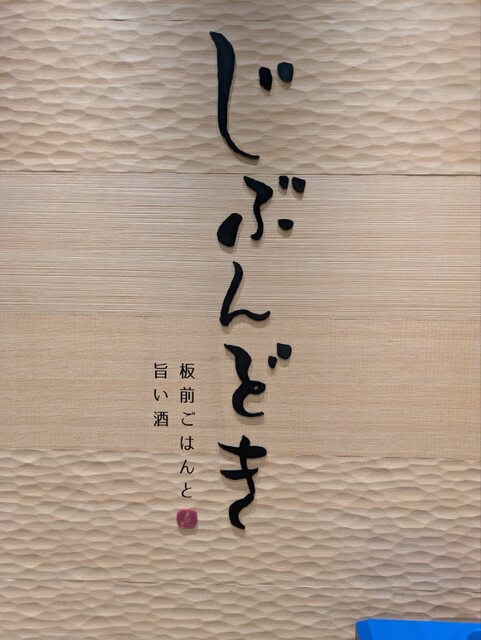 じぶんどき
板前ごはんと
旨い酒